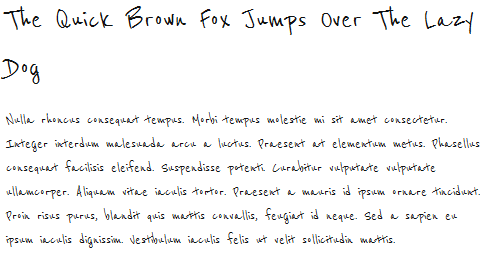 The Quick Brown Fox Jumps Over The Lazy
Dog
Nulla rhoncus consequat tempus. Morbi tempus molestie mi sit amet consectetur.
Integer interdum malesuada arcu a luctus. Praesent at elementum metus. Phasellus
consequat facilisis eleifend. Suspendisse potenti. Curabitur vulputate vulputate
ullamcorper. Aliquam vitae iaculis tortor. Praesent a mauris id ipsum ornare tincidunt.
Proin risus purus, blandit quis mattis convallis, feugiat id neque. Sed a sapien eu
ipsum iaculis dignissim. Vestibulum iaculis felis ut velit sollicitudin mattis.